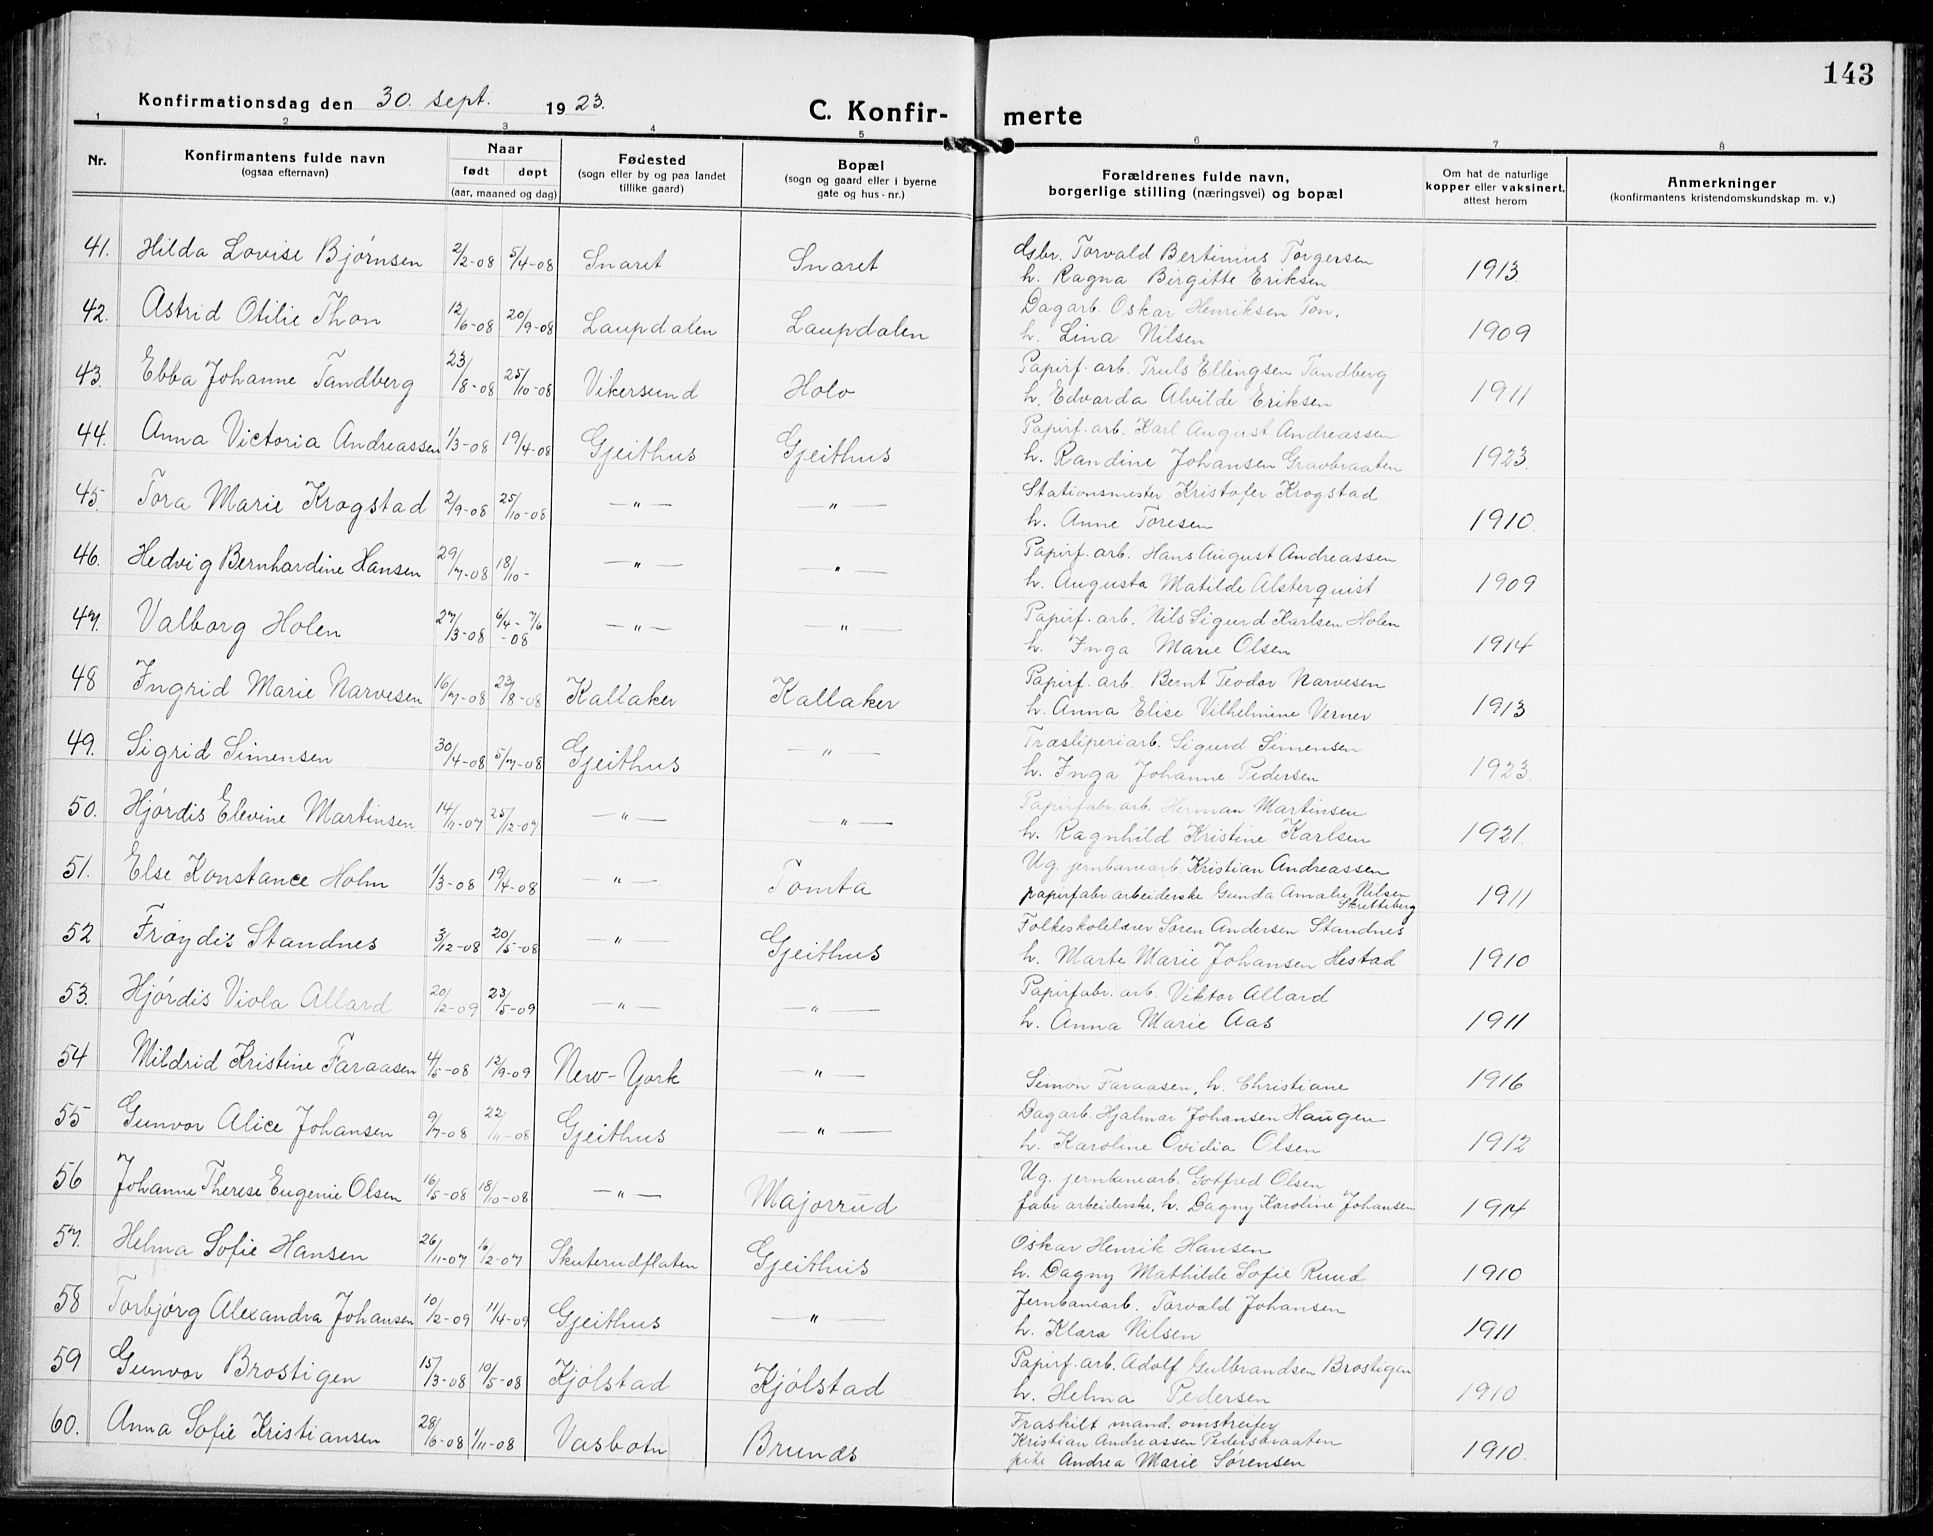 143
Konfirmationsdag den 30. sept. 1923.
C. Konfir- merte
1 2 3 4 5 6 7 8
Nr. Konfirmantens fulde navn (ogsaa efternavn) Naar født døpt (aar, maaned og dag) Fødested (sogn eller by og paa landet tillike gaard) Bopæl (sogn og gaard eller i byerne gate og hus-nr.) Forældrenes fulde navn, borgerlige stilling (næringsvei) og bopæl Om hat de naturlige kopper eller vaksinert, attest herom Anmerkninger (konfirmantens kristendomskundskap m. v.)
41. Hilda Lovise Bjørnsen 2/2-08 5/4-08 Snaret Snaret Gsbr. Torvald Bertinius Torgersen
h. Ragna Birgitte Eriksen 1913.
42. Astrid Otilie Thon 12/6-08 20/9-08 Laupdalen Laupdalen Dagarb. Oskar Henriksen Ton,
h. Lina Nilsen 1909
43. Ebba Johanne Tandberg 23/8-08 25/10-08 Vikersund Holo Papirf. arb. Truls Ellingsen Tandberg
h. Edvarda Alvilde Eriksen 1911
44. Anna Victoria Andreassen 1/3-08 19/4-08 Gjeithus Gjeithus Papirf. arb. Karl August Andreassen
h. Randine Johansen Gravbraaten 1923.
45. Tora Marie Krogstad 2/9-08 25/10-08 —"— —"— Stationsmester Kristofer Krogstad
h. Anne Toresen 1910.
46. Hedvig Bernhardine Hansen 29/7-08 18/10- —"— —"— Papirf. arb. Hans August Andreassen
h. Augusta Matilde Alsterquist 1909
47. Valborg Holen 27/3-08 6/4- 7/6 -08 —"— —"— Papirf. arb. Nils Sigurd Karlsen Holen
h. Inga Marie Olsen 1914
48 Ingrid Marie Narvesen 16/7-08 23/8-08 Kallaker Kallaker Papirf. arb. Bernt Teodor Narvesen
h. Anna Elise Vilhelmine Verner 1913
49. Sigrid Simensen 30/4-08 5/7-08 Gjeithus —"— Træsliperiarb. Sigurd Simensen
h. Inga Johanne Pedersen 1923.
50. Hjørdis Elevine Martinsen 14/11-07 25/12-07 —"— —"— Papirfabr. arb. Herman Martinsen
h. Ragnhild Kristine Karlsen 1921.
51. Else Konstance Holm 1/3-08 19/4-08 —"— Tomta Ug. jernbanearb. Kristian Andreassen
papirfabr. arbeiderske Gunda Amalie Nilsen 1911
52 Frøydis Standnes 3/12-08 20/5-08 —"— Gjeithus Folkeskolelærer Søren Andersen Standnes
h. Marte Marie Johansen Hestad 1910
53. Hjørdis Viola Allard 20/2-09 23/5-09 —"— —"— Papirfabr. arb. Viktor Allard
h. Anna Marie Aas 1911
54 Mildrid Kristine Faraasen 4/5-08 12/9-09 New-York —"— Simon Faraasen, h. Christiane 1916
55 Gunvor Alice Johansen 9/7-08 22/11-08 Gjeithus —"— Dagarb. Hjalmar Johansen Haugen
h. Karoline Ovidia Olsen 1912
56 Johanne Therese Eugenie Olsen 16/5-08 18/10-08 —"— Majorrud Ug. jernbanearb. Gotfred Olsen
fabr. arbeiderske, h. Dagny Karoline Johansen 1914
57. Helma Sofie Hansen 26/11-07 16/12-07 Skuterudflaten Gjeithus Oskar Henrik Hansen
h. Dagny Mathilde Sofie Ruud 1910
58 Torbjørg Alexandra Johansen 10/2-09 11/4-09 Gjeithus —"— Jernbanearb. Torvald Johansen
h. Klara Nilsen 1911
59 Gunvor Brostigen 15/3-08 10/5-08 Kjølstad Kjølstad Papirf. arb. Adolf Gulbrandsen Brostigen
h. Helma Pedersen 1910
60. Anna Sofie Kristiansen 28/6-08 1/11-08 Vasbotn Brunes Fraskilt mand. omstreifer
Kristian Andreassen Pedersbraaten
pike Andrea Marie Sørensen 1910.